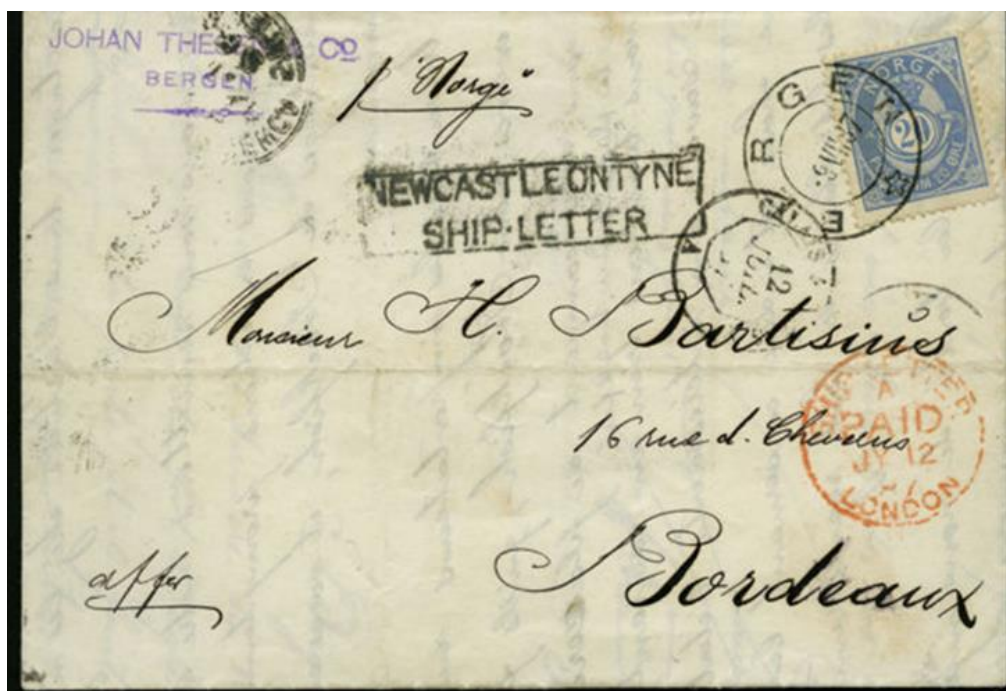 JOHAN & Co
BERGEN
p "Norge"
NEWCASTLE ON TYNE
SHIP-LETTER
BERGEN
NORGE
20
12
JUIL
Monsieur H. Bartisius
16 rue d.
Bordeaux
SHIP LETTER
A
PAID
JY 12
LONDON